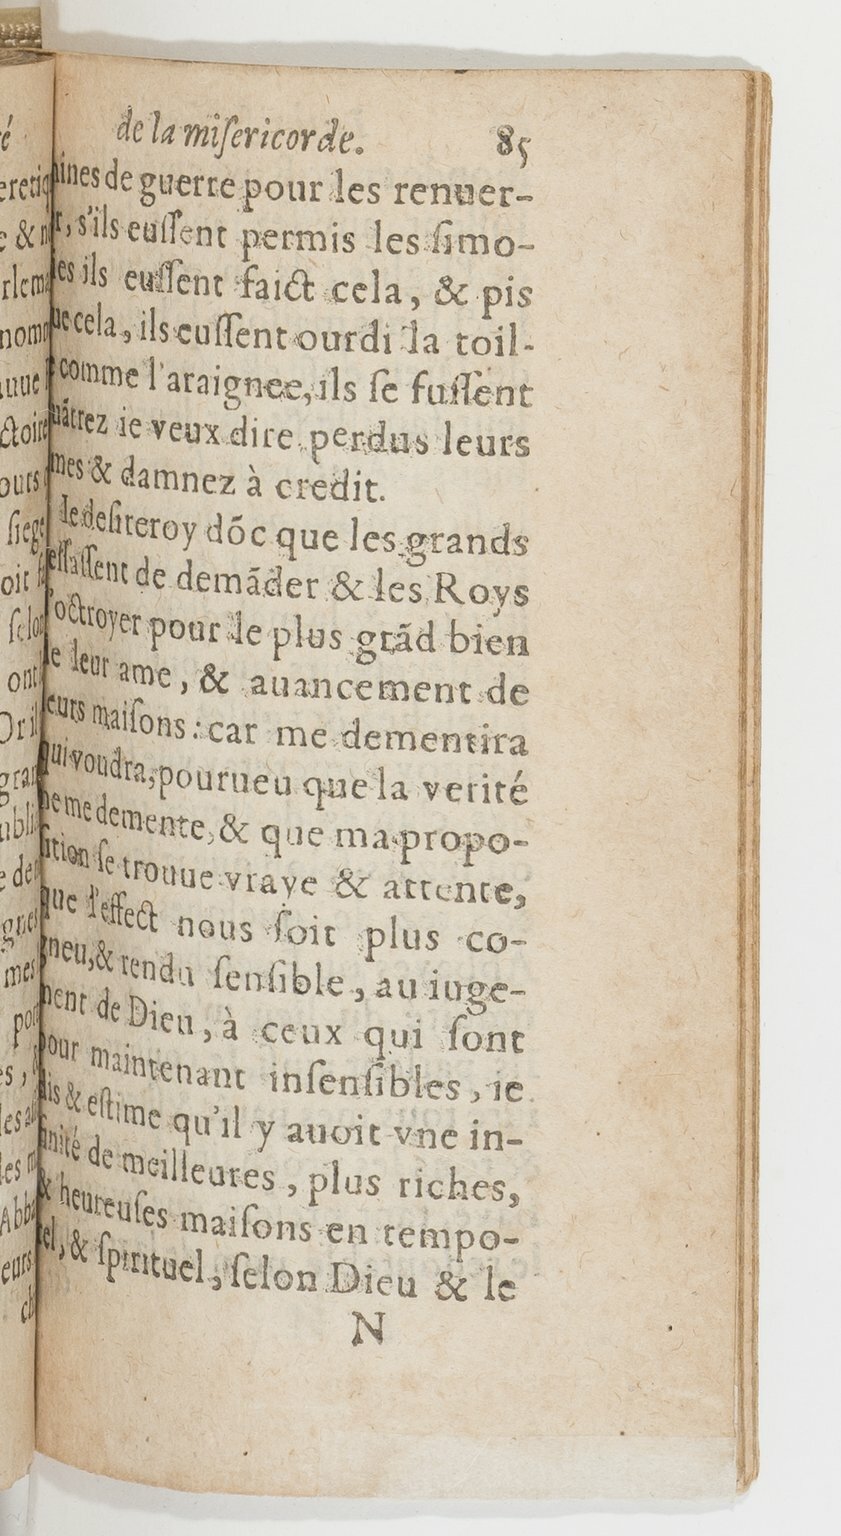 de la miſericorde. 85
ines de guerre pour les renuer-
r, s'ils euſſent permis les ſimo-
es ils euſſent faict cela, & pis
ue cela, ils euſſent ourdi la toil-
comme l'araignee, ils ſe fuſſent
ie veux dire perdus leurs
mes & damnez à credit.
Ie deſireroy dõc que les grands
ſſaſſent de demãder & les Roys
octroyer pour le plus grãd bien
e leur ame, & auancement de
eurs maiſons: car me dementira
qui voudra, pourueu que la verité
ne me demente, & que ma propo-
ſition ſe trouue vraye & attente,
que l'effect nous ſoit plus co-
neu, & rendu ſenſible, au iuge-
ment de Dieu, à ceux qui ſont
pour maintenant inſenſibles, ie
is & eſtime qu'il y auoit vne in-
finité de meilleures, plus riches,
& heureuſes maiſons en tempo-
el, & ſpirituel, ſelon Dieu & le
N